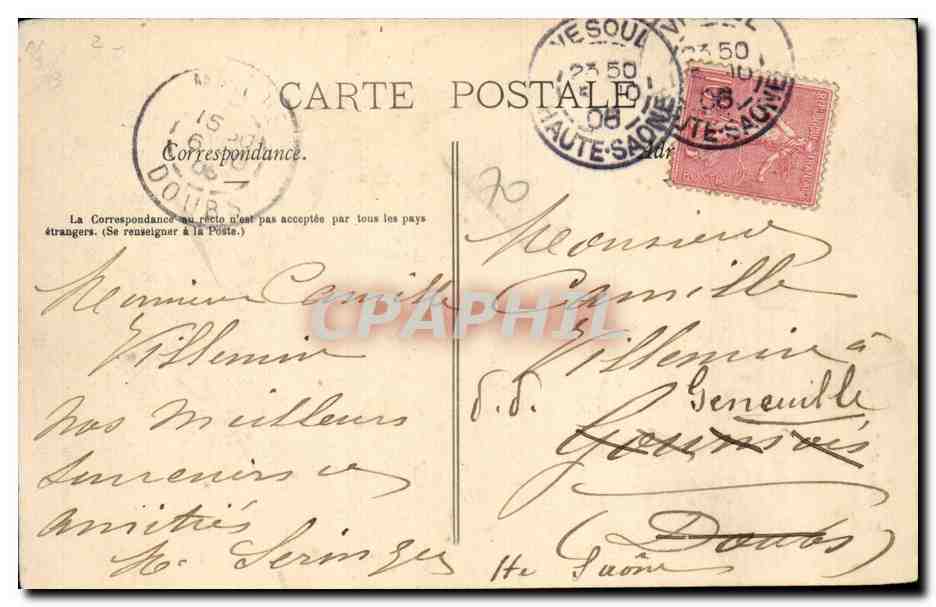 CARTE POSTALE
VESOUL
23 50
HAUTE-SAONE
23 50
10
08
DOUBS
Correspondance.
Adr
70
La Correspondance au recto n'est pas acceptée par tous les pays
étrangers. (Se renseigner à la Poste.)
Monsieur Camille
Villemin
Nos meilleurs
souvenirs et
amitiés
Monsieur
Camille
Villemin à
Geneuille
Goumois
(Doubs)
Hte Saône
CPAPHIL